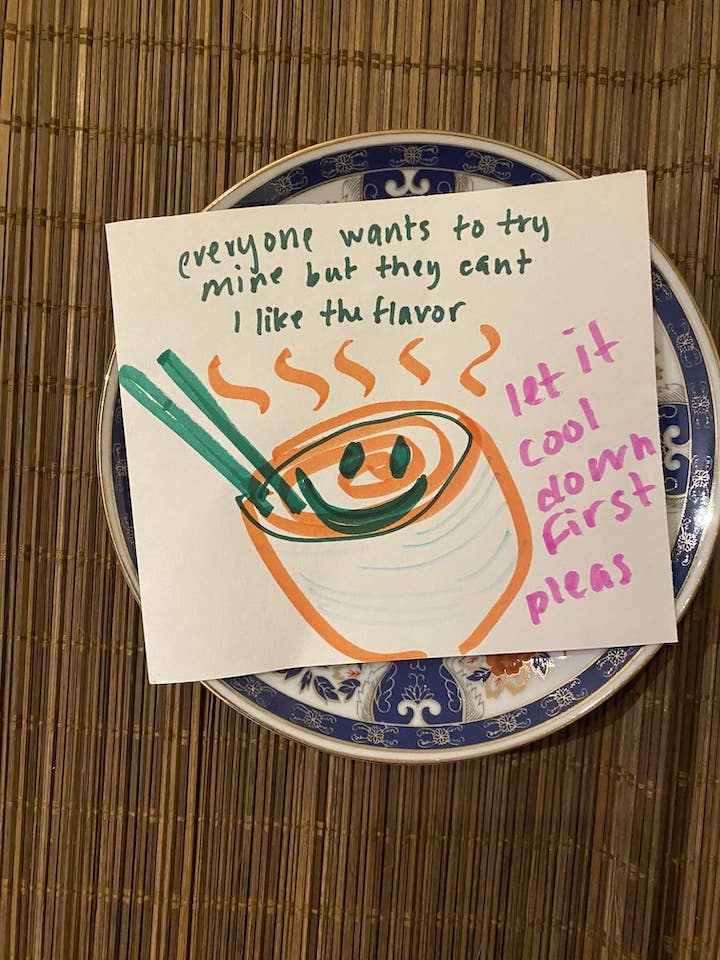 everyone wants to try
mine but they cant
I like the flavor
let it
cool
down
first
pleas